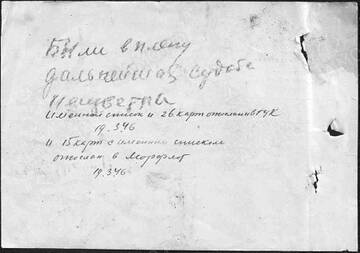 Были в плену
дальнейшая судьба
неизвестна
Именной список и 26 карт отослан в ГУК
19.3.46
и 15 карт с именным списком
отослан в Морфлот
19.3.46